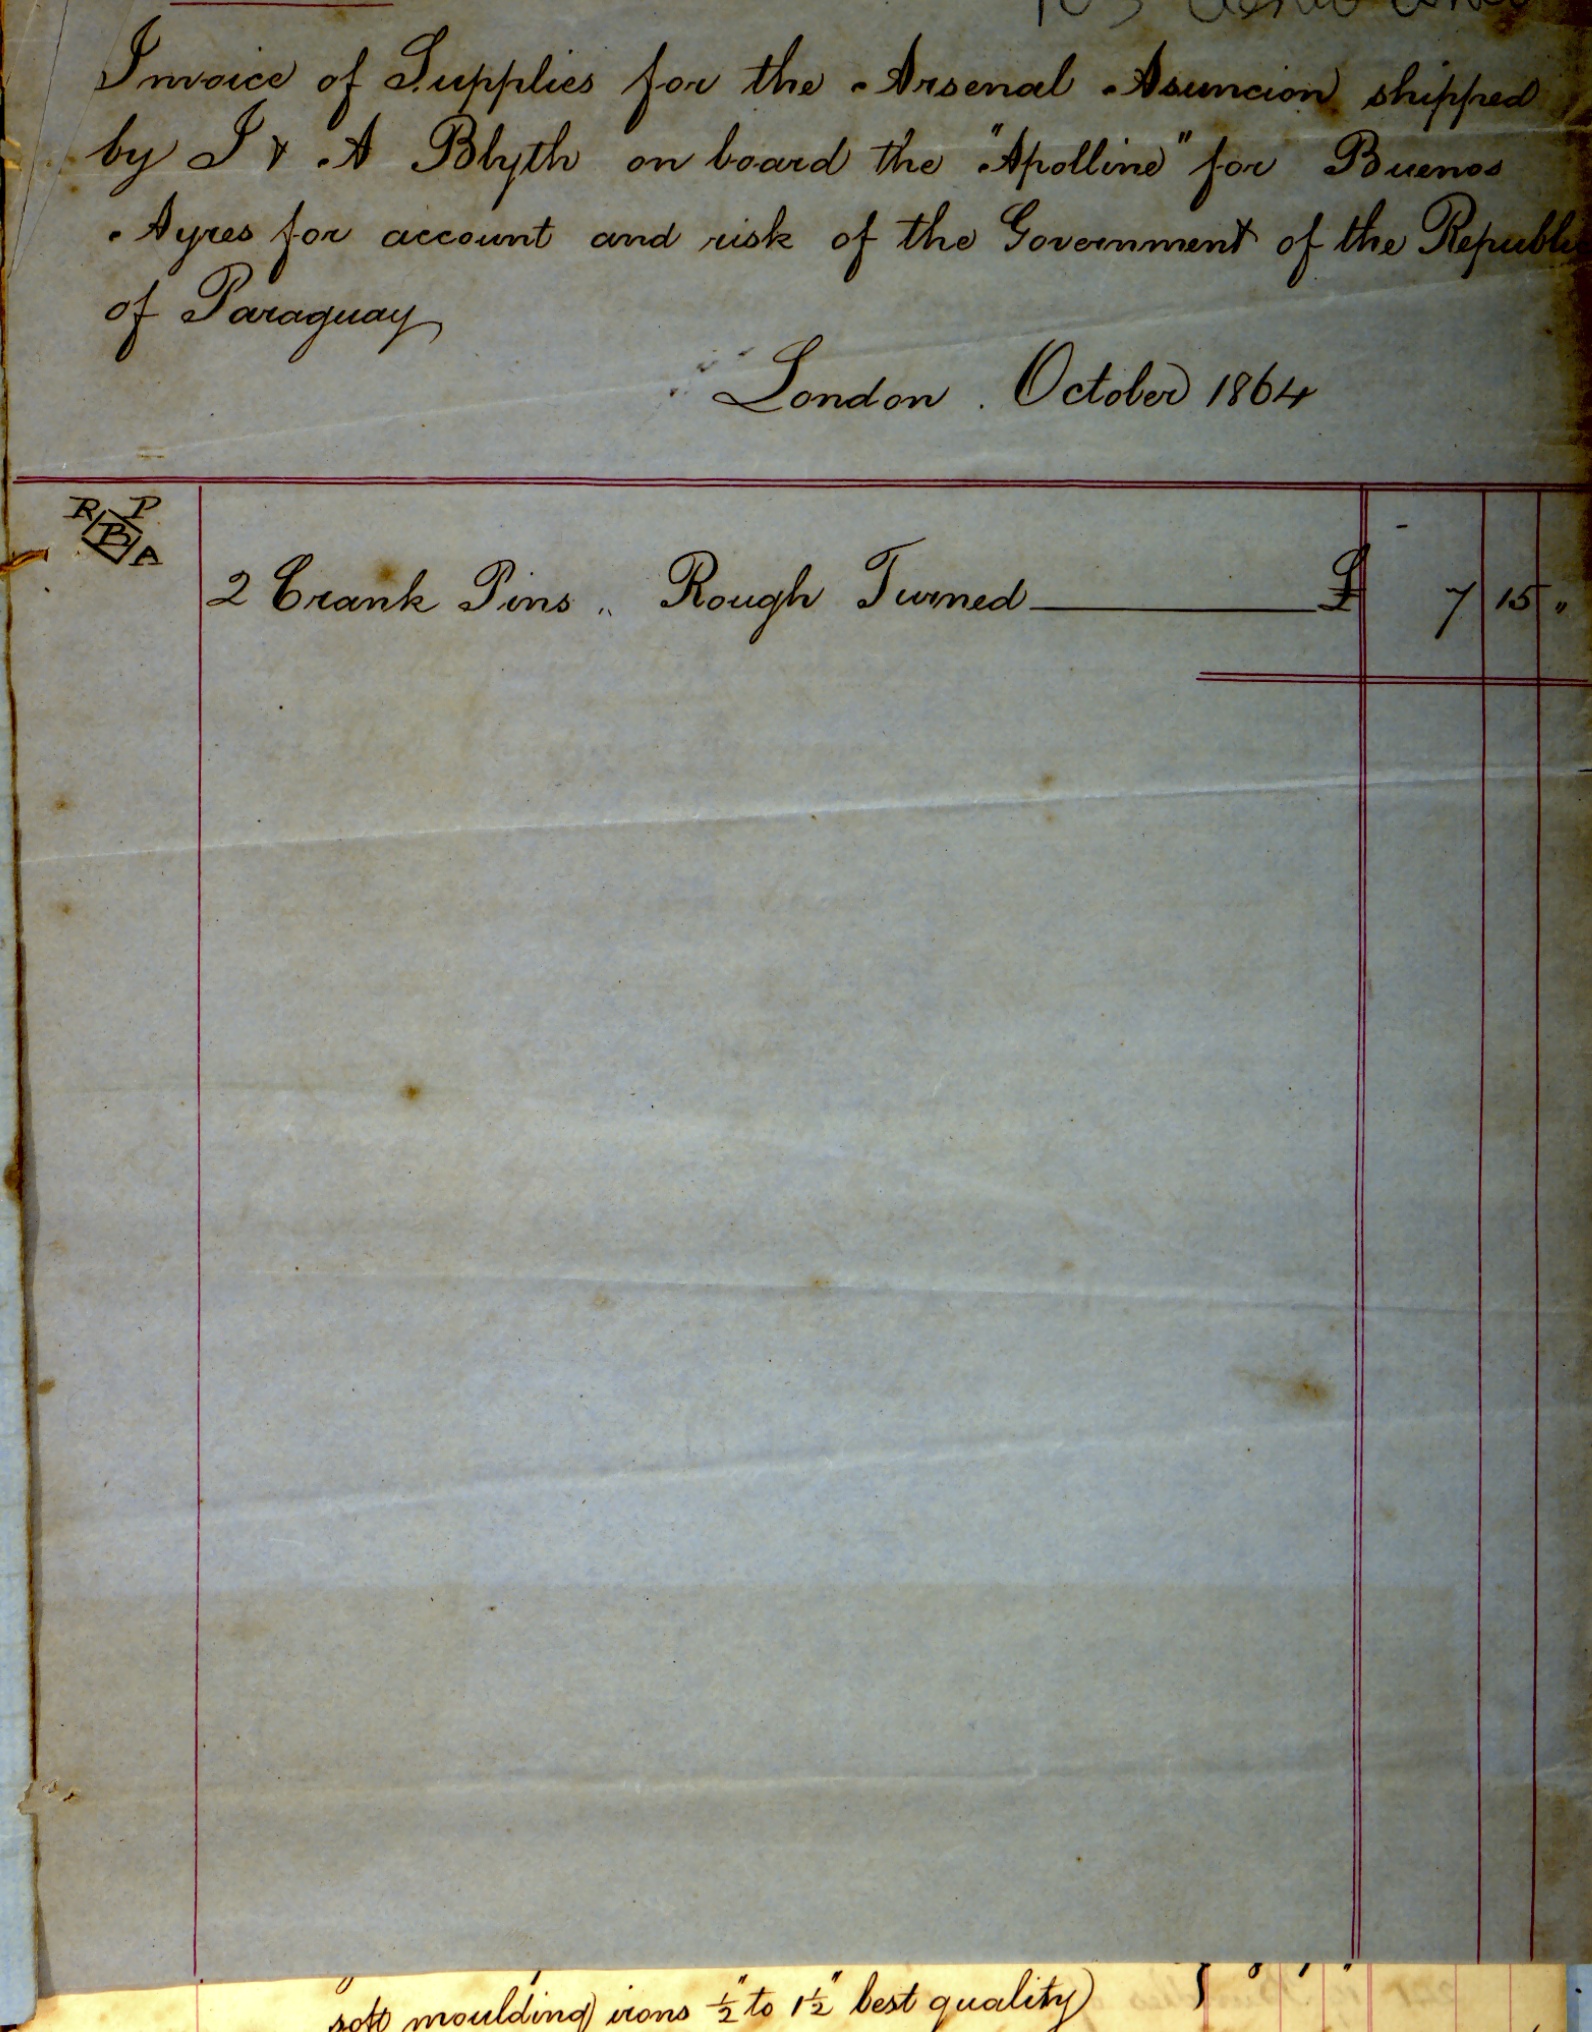 Invoice of Supplies for the Arsenal Asuncion shipped
by J & A Blyth on board the "Apolline" for Buenos
Ayres for account and risk of the Government of the Republi
of Paraguay
London. October 1864
R P
B
A
2 Crank Pins „ Rough Turned £ 7 15 "
soft moulding irons ½" to 1½" best quality